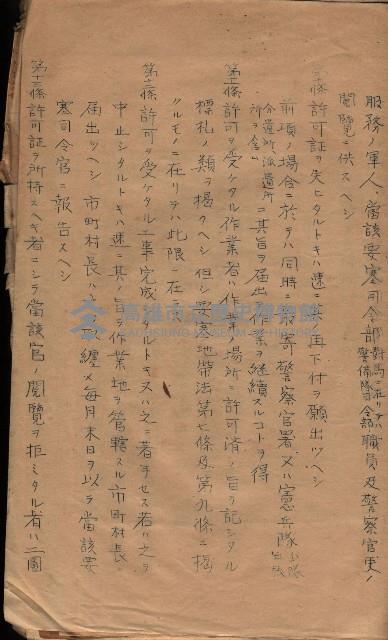 服務ノ軍人、當該要塞司令部對馬ニ在リテハ警備隊ヲ含ム職員及警察官吏ノ
閲覽ニ供スヘシ
條 許可証ヲ失ヒタルトキハ速ニ 再下付ヲ願出ツヘシ
前項ノ場合ニ於テハ同時ニ最寄警察官署又ハ憲兵隊
所ヲ含ムニ其旨ヲ届出 作業ヲ継續スルコトヲ得
許可ヲ受ケタル作業者ハ作業ノ場所ニ許可済ノ旨ヲ記シタル
標札ノ類ヲ揭クヘシ但シ要塞地帶法第七條及第九條ニ揭
クルモノニ在リテハ此限ニ在
許可ヲ受ケタル工事完成 ルトキ又ハ之ニ着手セス若ハ之ヲ
中止シタルトキハ速ニ其ノ旨ヲ作業地ヲ管轄スル市町村長ニ
届出ツヘシ 市町村長ハ 纏メ每月末日ヲ以テ當該要
塞司令官ニ報告スヘシ
許可証ヲ所持スヘキ者ニシテ當該官ノ閲覽ヲ拒ミタル者ハ二圓
高雄市立歷史博物館
KAOHSIUNG MUSEUM OF HISTORY